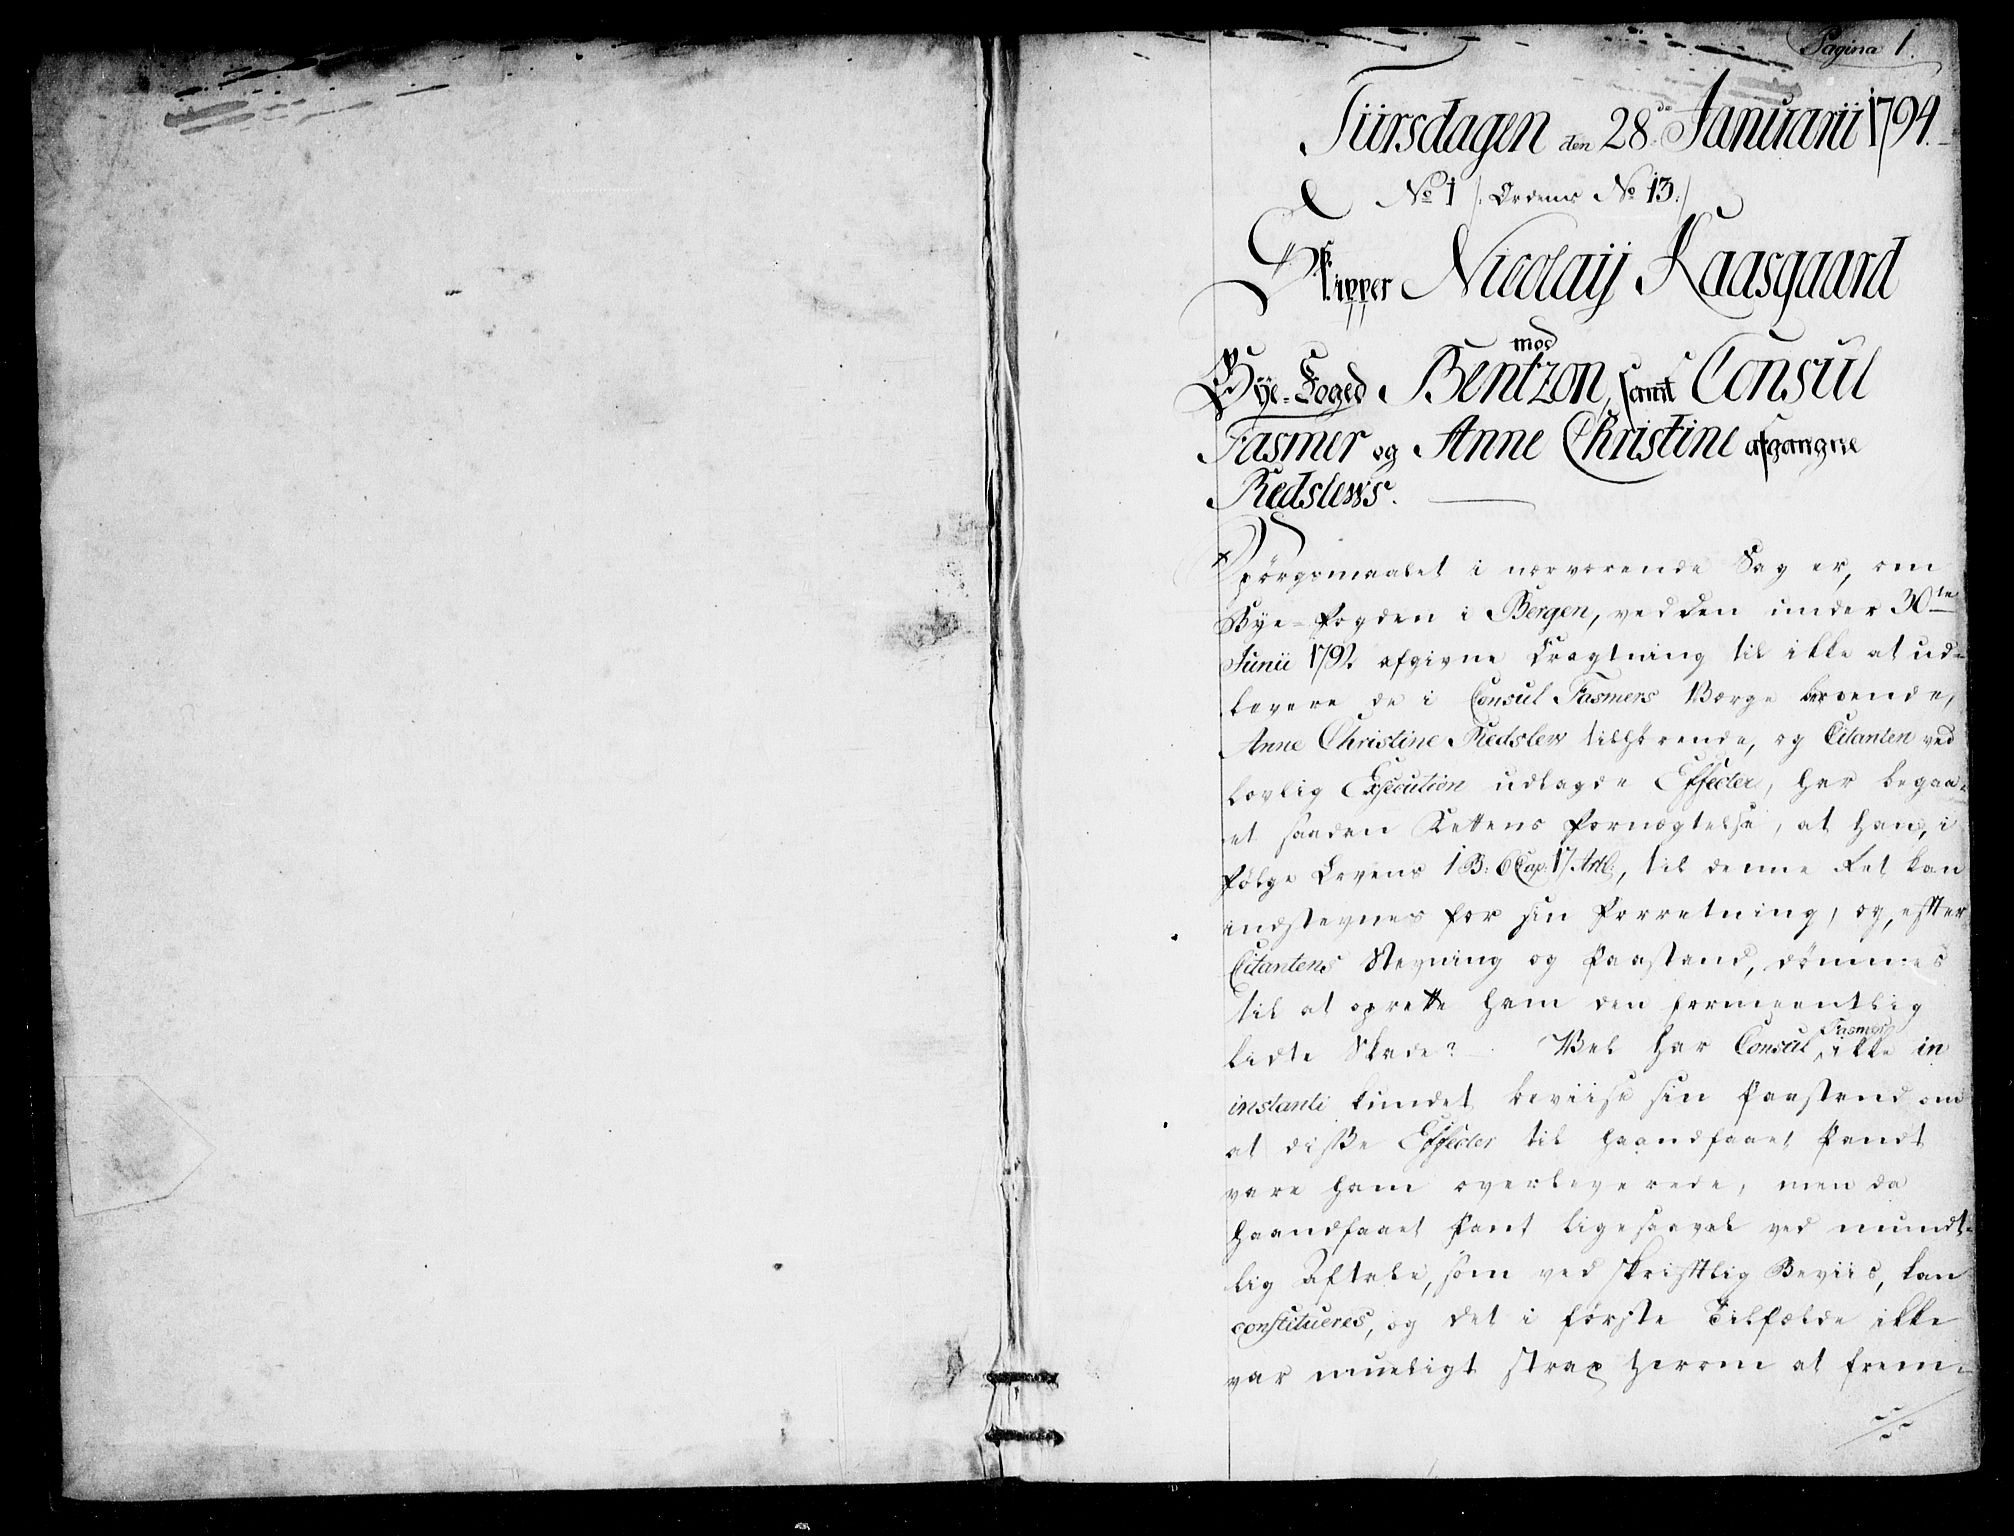 Pagina 1.
Tiirsdagen den 28de Januarii 1794.
No 1 /: Ordens No 13. :/
Skipper Nicolaij Kaasgaard
mod
Bye-Foged Bentzon, samt Consul
Fasmer og Anne Christine afgangne
Redslews.
Spørgsmaalet i nærværende Sag er, om
Bye-Fogden i Bergen, ved den under 30te
Junii 1792 afgivne Kragtning til ikke at ud-
levere de i Consul Fasmers Værge beroende,
Anne Christine Redslew tilhørende, og Citanten ved
lovlig Execution udlagde Effecter, har begaa-
et saaden Rettens Fornægtelse, at han, i
følge Lovens 1 B: 6 Cap: 17 Artl:, til denne Ret kan
indstevnes for sin Forretning, og, efter
Citantens Stevning og Paastand, dømmes
til at oprette ham den formeentlig
lidte Skade? Vel har Consul Fasmer ikke in
instanti kundet beviise sin Paastand om
at disse Effecter til haandfaaet Pandt
vare ham overleverede, men da
haandfaaet Pant ligesaavel ved mundt-
lig Aftale, som ved skriftlig Beviis, kan
constitueres, og det i første Tilfælde ikke
var mueligt strax herom at frem-